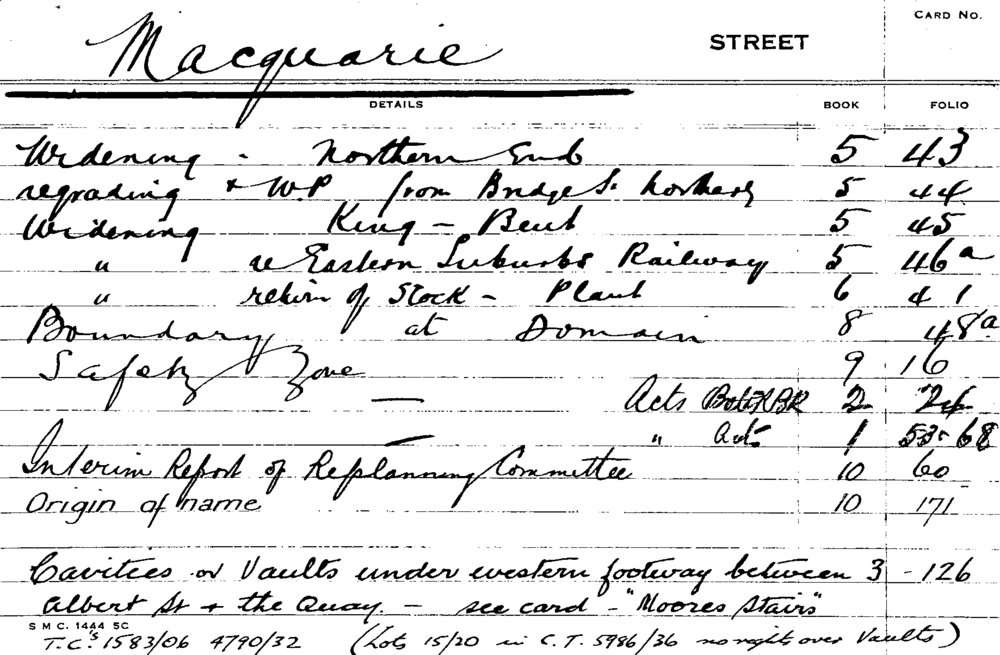 CARD No.
Macquarie STREET
DETAILS BOOK FOLIO
Widening - Northern End 5 43
regrading & W.P from Bridge St northerly 5 44
Widening King - Bent 5 45
" re Eastern Suburbs Railway 5 46a
" return of Stock - Plant 6 41
Boundary at Domain 8 48a
Safety Zone 9 16
— Acts BR 2 26
— " Act 1 53-68
Interim Report of Replanning Committee 10 60
Origin of name 10 171
Cavities or Vaults under western footway between 3 - 126
Albert St & the Quay. - see card - "Moores Stairs"
S M C. 1444 5C
T.C's 1583/06 4790/32 (Lots 15/20 in C.T. 5986/36 no rights over Vaults)